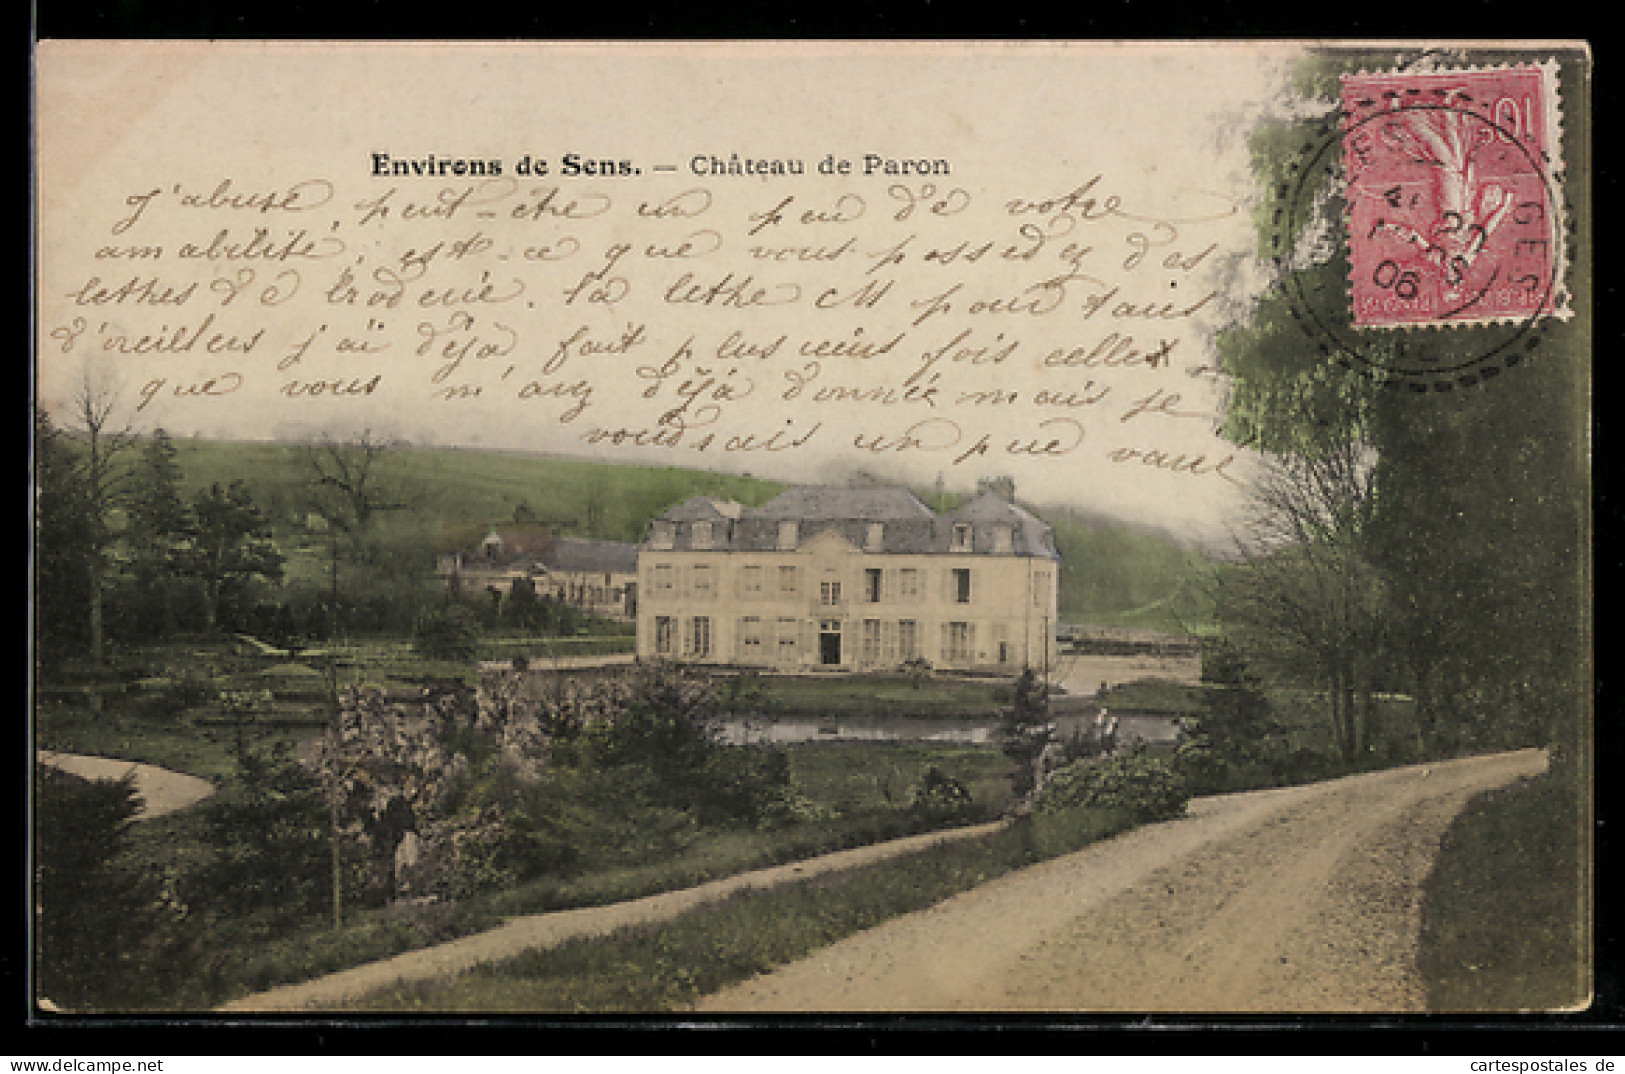 Environs de Sens. — Château de Paron
j'abuse peut-être un peu de votre
amabilité; est-ce que vous possédez des
lettres de broderie. la lettre M pour taies
d'oreillers j'ai déjà fait plusieurs fois celles
que vous m'avez déjà donnée mais je
voudrais un peu varié
10c
GES
MARS
06
Delcampe.net
cartespostales de